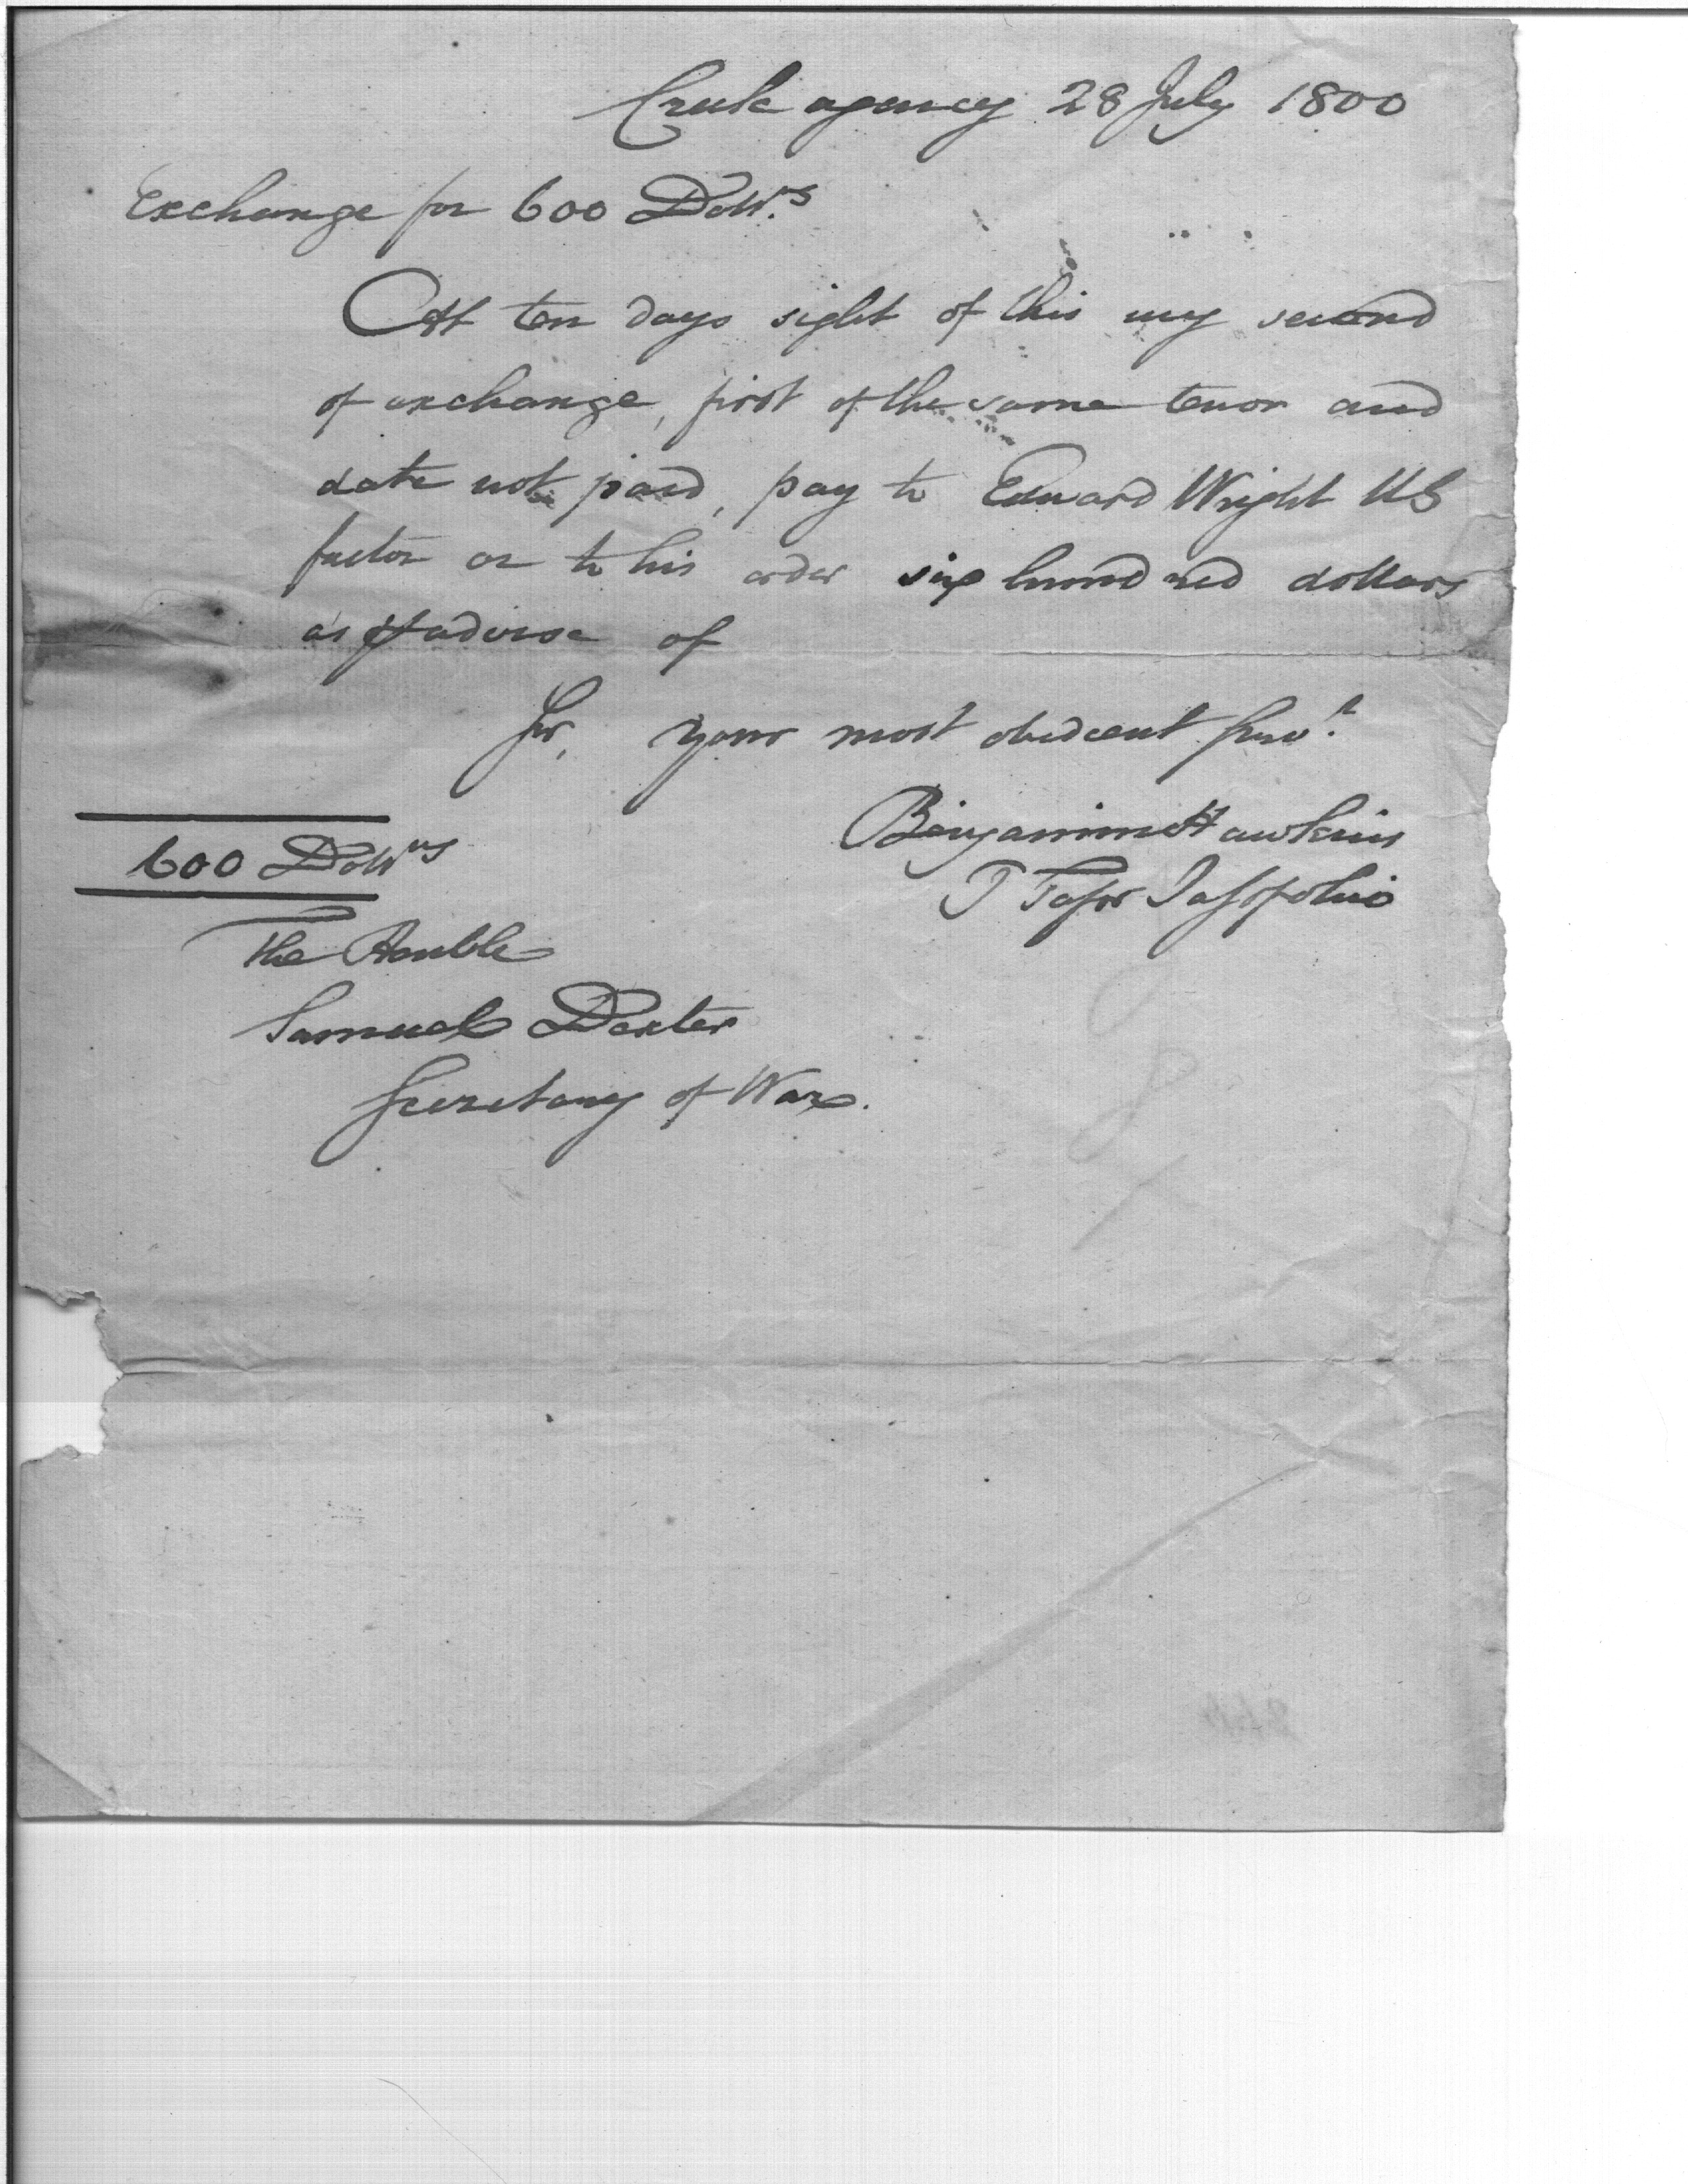 Creek agency 28 July 1800
Exchange for 600 Dollrs
At ten days sight of this my second
of exchange, first of the same tenor and
date not paid, pay to Edward Wright US
factor or to his order six hundred dollars
as pr advise of
Sir, your most obedient servt
600 Dollrs
Benjamin Hawkins
The Honble
Samuel Dexter
Secretary of War.